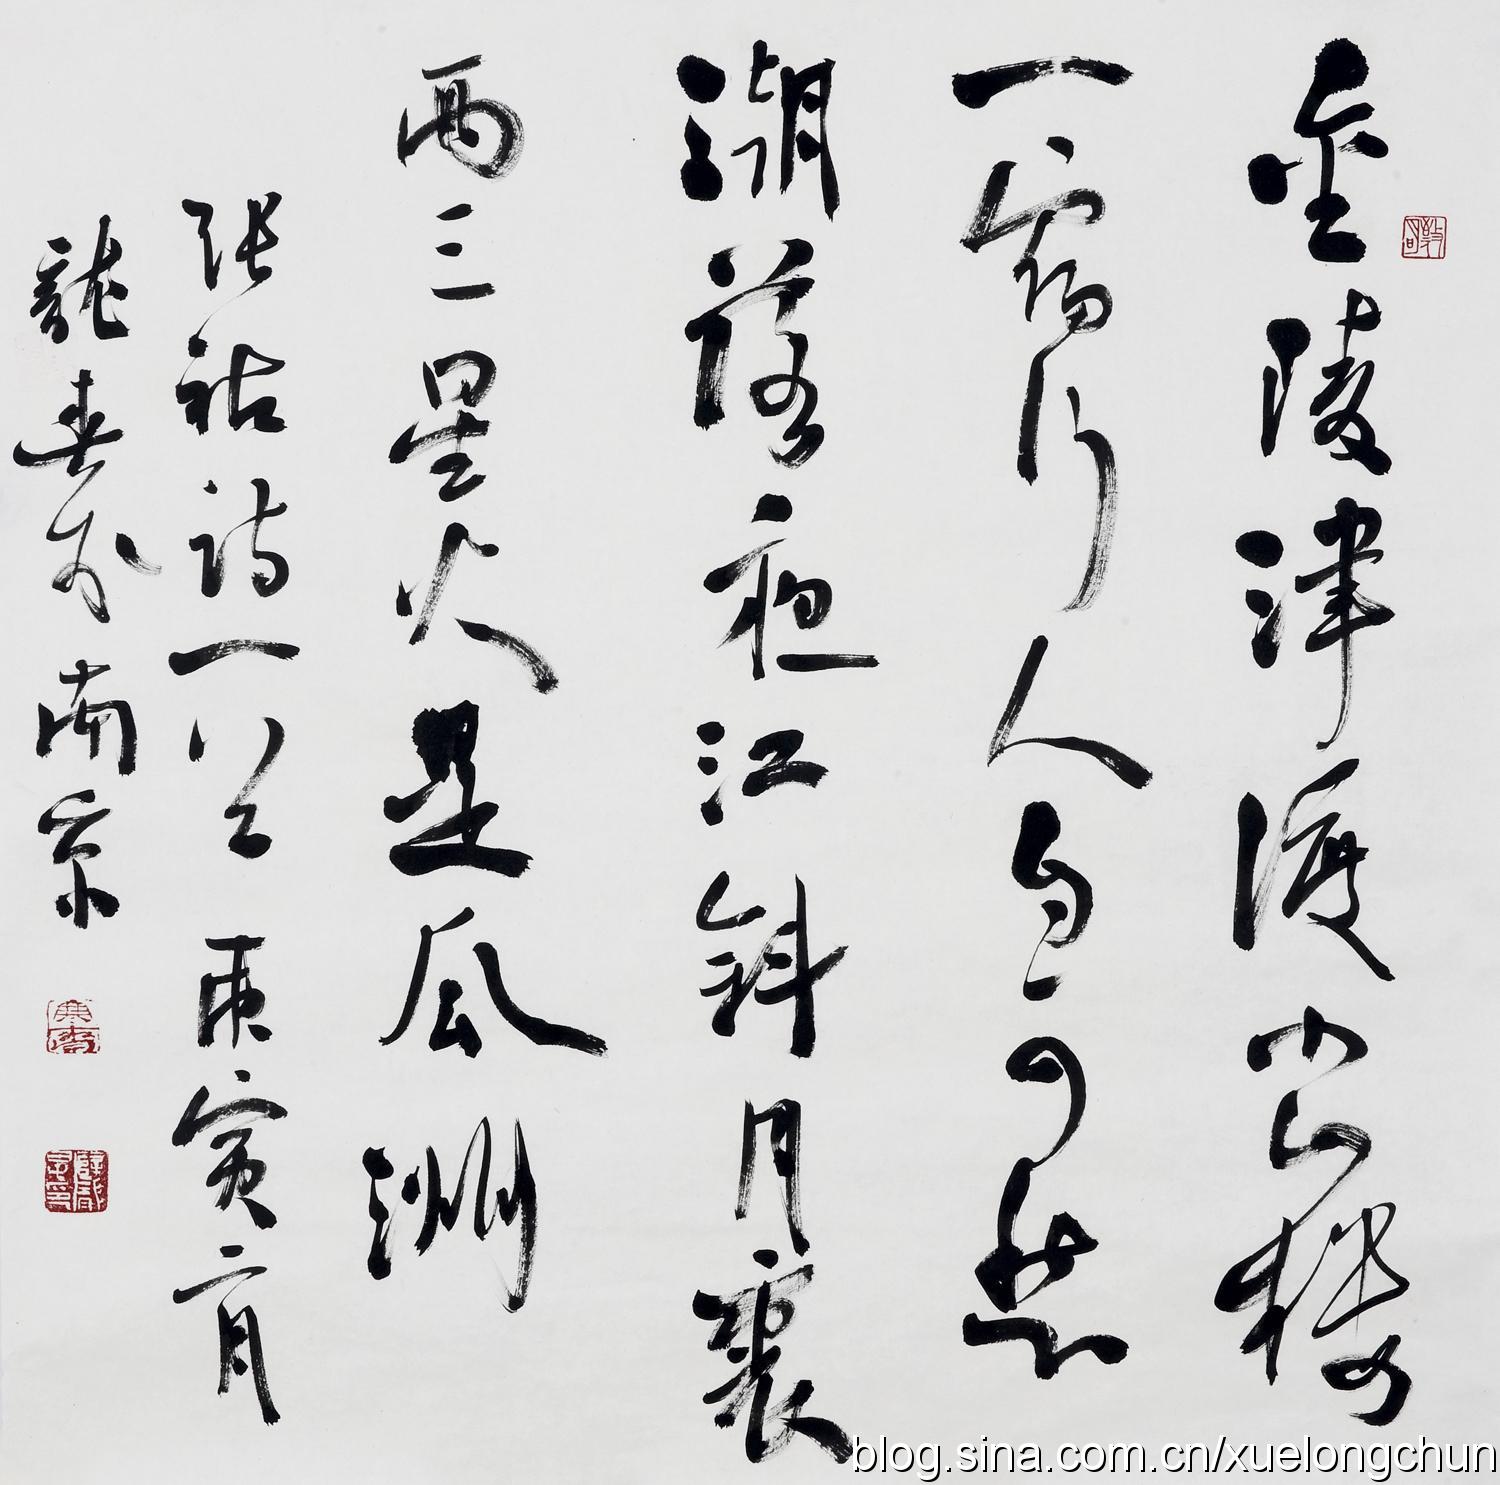 金陵津渡小山樓
一宿行人自可愁
潮落夜江斜月裏
兩三星火是瓜洲
張祜詩一首 庚寅二月
龍春於南京
blog.sina.com.cn/xuelongchun